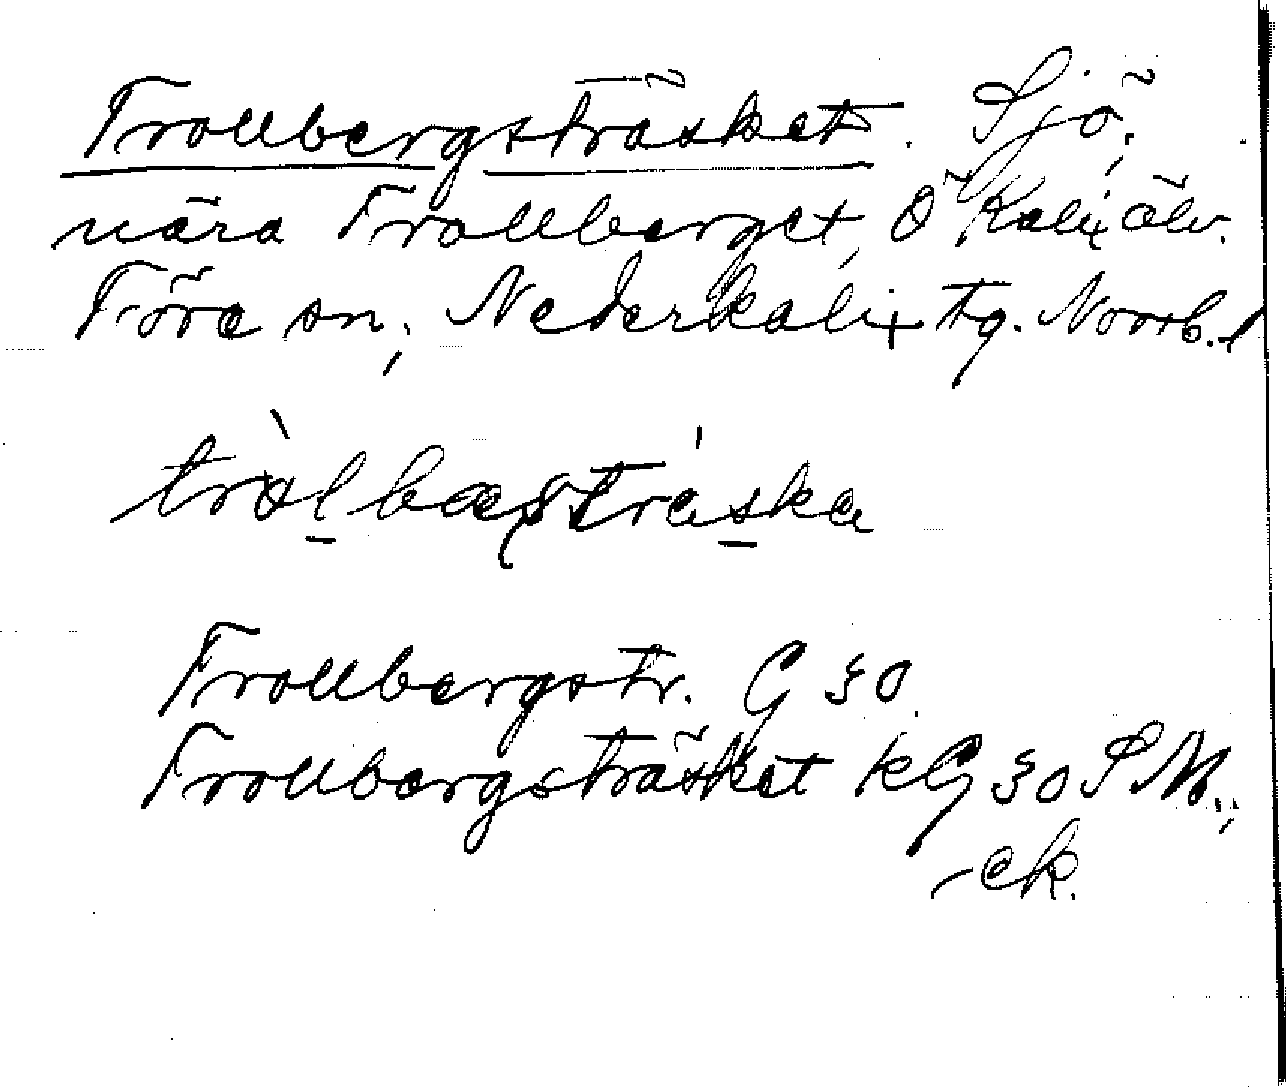 Trollbergsträsket. Sjö,
nära Trollberget, Ö Kalix älv.
Töre sn, Nederkalix tg. Norrb. l
Trollbergstr. G 30
Trollbergsträsket kG 30 S M.,
-ck.